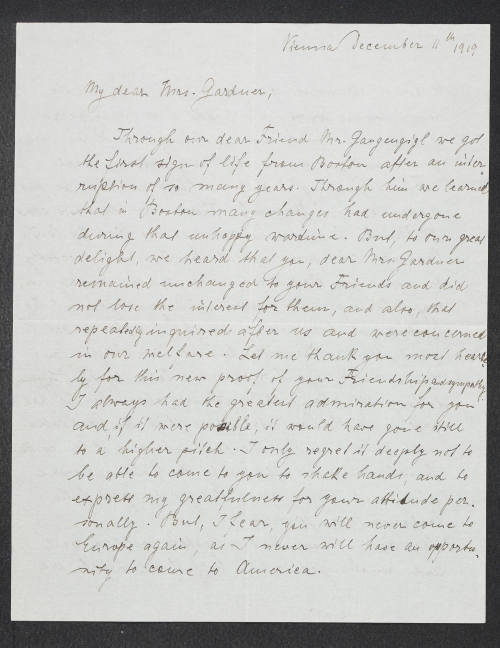 Vienna December 11th 1919
My dear Mrs. Gardner,
Through our dear Friend Mr. Gangengigl we got
the first sign of life from Boston after an inter-
ruption of so many years. Through him we learned
that in Boston many changes had undergone
during that unhappy wartime. But, to our great
delight, we heard that you, dear Mrs Gardner
remained unchanged to your Friends and did
not lose the interest for them, and also, that
repeatedly inquired after us and were concerned
in our welfare. Let me thank you most hearti-
ly for this new proof of your Friendship and sympathy.
I always had the greatest admiration for you
and, if it were possible, it would have gone still
to a higher pitch. I only regret it deeply not to
be able to come to you to shake hands, and to
express my greatfulness for your attitude per-
sonally. But, I fear, you will never come to
Europe again, as I never will have an opportu-
nity to come to America.